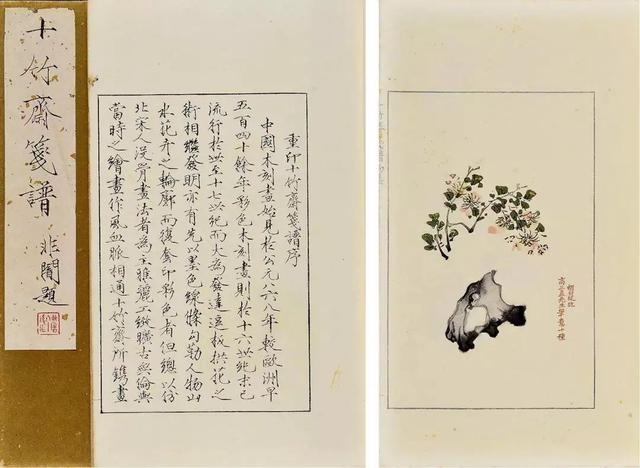 十竹齋箋譜
非闇題
重印十竹齋箋譜序
中國木刻畫始見於公元八六八年較歐洲早
五百四十餘年彩色木刻畫則於十六世紀末已
流行於世至十七世紀而大為發達逗板拱花之
術相繼發明亦有先以墨色線條勾勒人物山
水花卉之輪廓而復套印彩色者但總以仿
北宋人沒骨畫法者為主雅麗工緻曠古無倫與
當時之繪畫作風血脈相通十竹齋所鐫畫
高三益先生筆意十種